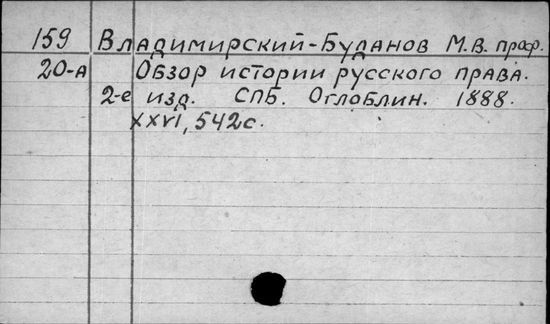 159 Владимирский-Буданов М.В. проф.
20-А Обзор истории русского права.
2-е изд. СПБ. Оглоблин. 1888.
XXVI, 542с.